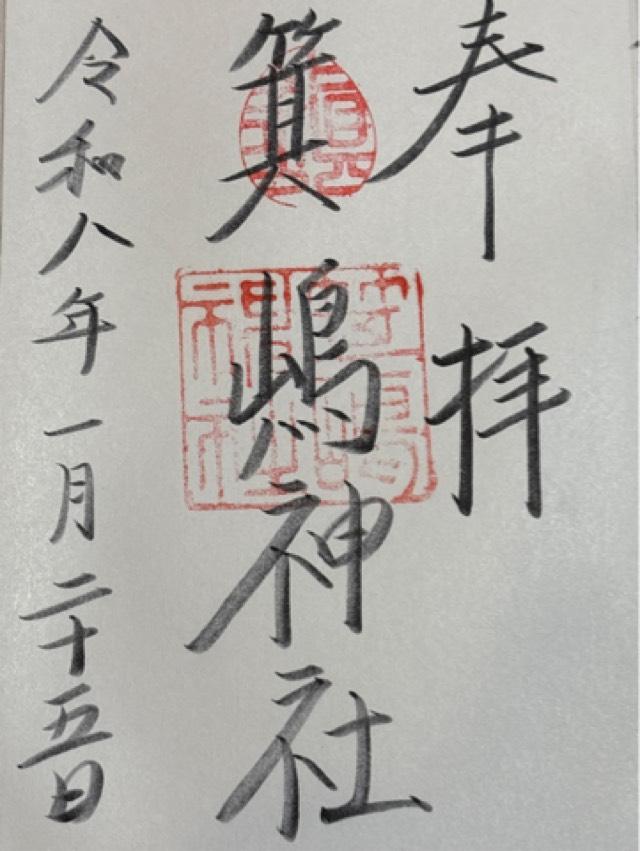 奉拝
箕嶋神社
令和八年一月二十五日